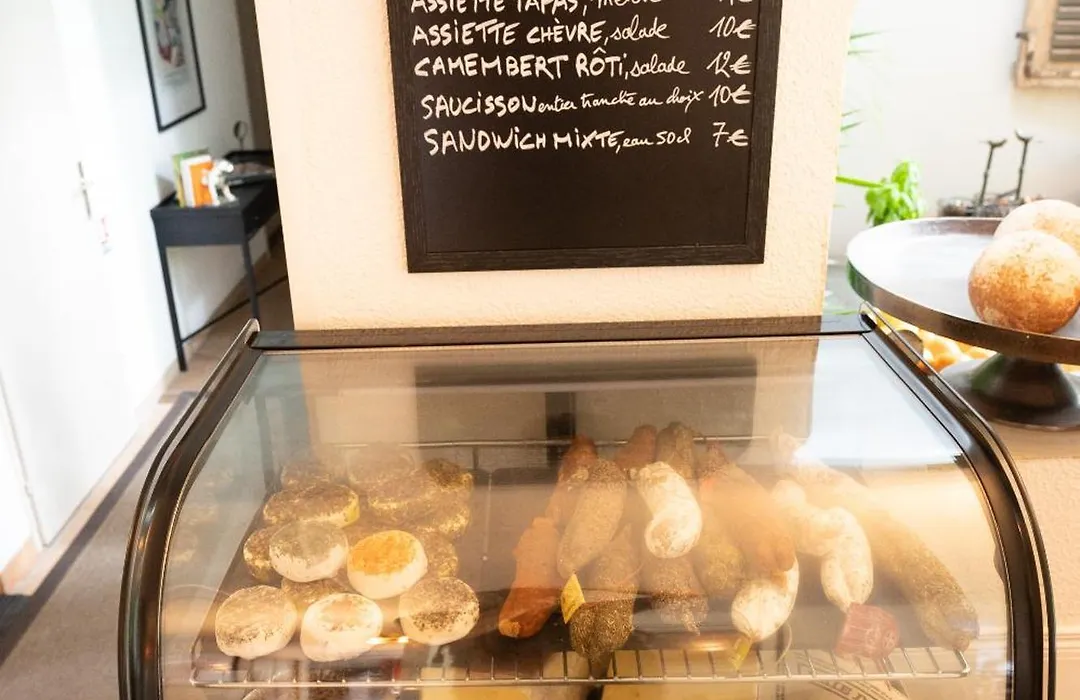 ASSIETTE TAPAS,
ASSIETTE CHÈVRE, salade 10€
CAMEMBERT RÔTI, salade 12€
SAUCISSON entier tranché au choix 10€
SANDWICH MIXTE, eau 50cl 7€